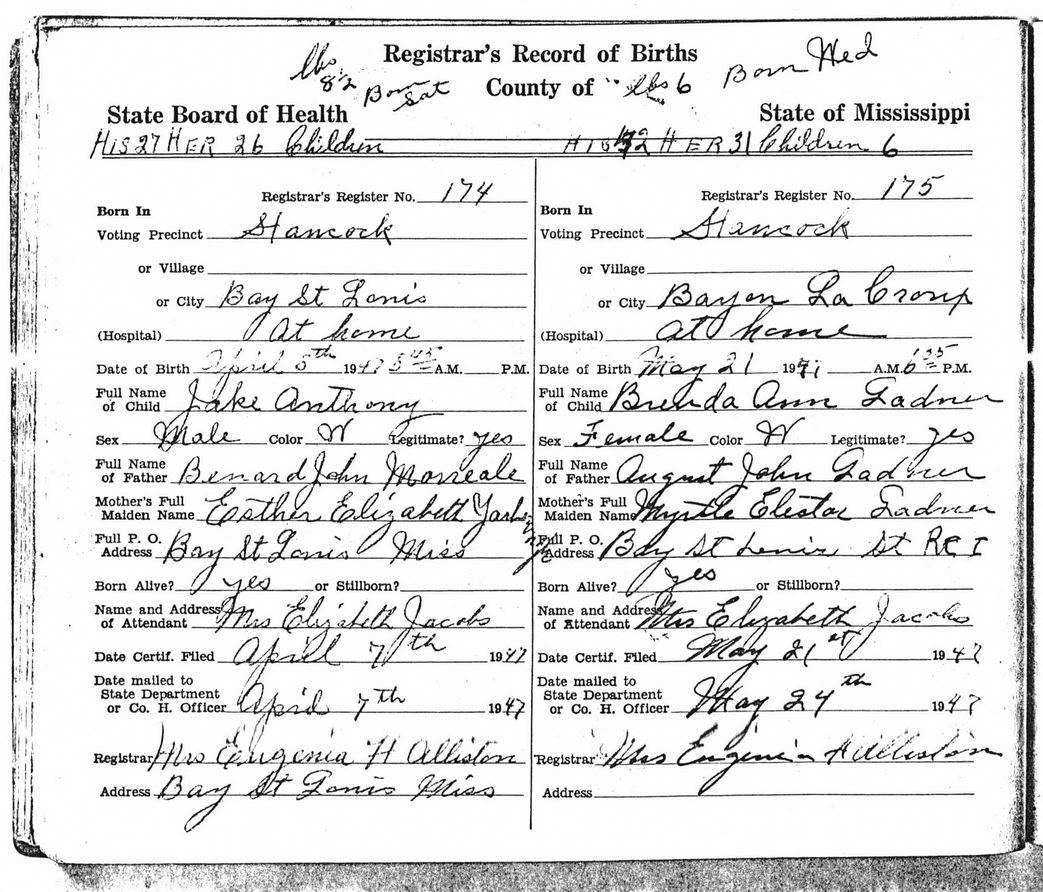 Registrar's Record of Births
lbs 8½ Born Sat County of " lbs 6 Born Wed
State Board of Health State of Mississippi
HIS 27 HER 26 Children
HIS 32 HER 31 Children 6
Registrar's Register No. 174
Born In
Voting Precinct Hancock
or Village
or City Bay St Louis
(Hospital) At home
Date of Birth April 5th 1947 5 45 A.M. P.M.
Full Name
of Child Jake Anthony
Sex Male Color W Legitimate? yes
Full Name
of Father Benard John Morreale
Mother's Full
Maiden Name Esther Elizabeth
Full P. O.
Address Bay St Louis Miss
Born Alive? yes or Stillborn?
Name and Address
of Attendant Mrs Elizabeth Jacobs
Date Certif. Filed April 7th 1947
Date mailed to
State Department
or Co. H. Officer April 7th 1947
Registrar Mrs Eugenia H Alliston
Address Bay St Louis Miss
Registrar's Register No. 175
Born In
Voting Precinct Hancock
or Village
or City Bayou La Croux
(Hospital) at home
Date of Birth May 21 1947 A.M. 6 P.M.
Full Name
of Child Brenda Ann Ladner
Sex Female Color W Legitimate? yes
Full Name
of Father August John Ladner
Mother's Full
Maiden Name Myrtle Elestar Ladner
Full P. O.
Address Bay St Louis St R I
Born Alive? yes or Stillborn?
Name and Address
of Attendant Mrs Elizabeth Jacobs
Date Certif. Filed May 21st 1947
Date mailed to
State Department
or Co. H. Officer May 24th 1947
Registrar Mrs Eugenia H Alliston
Address